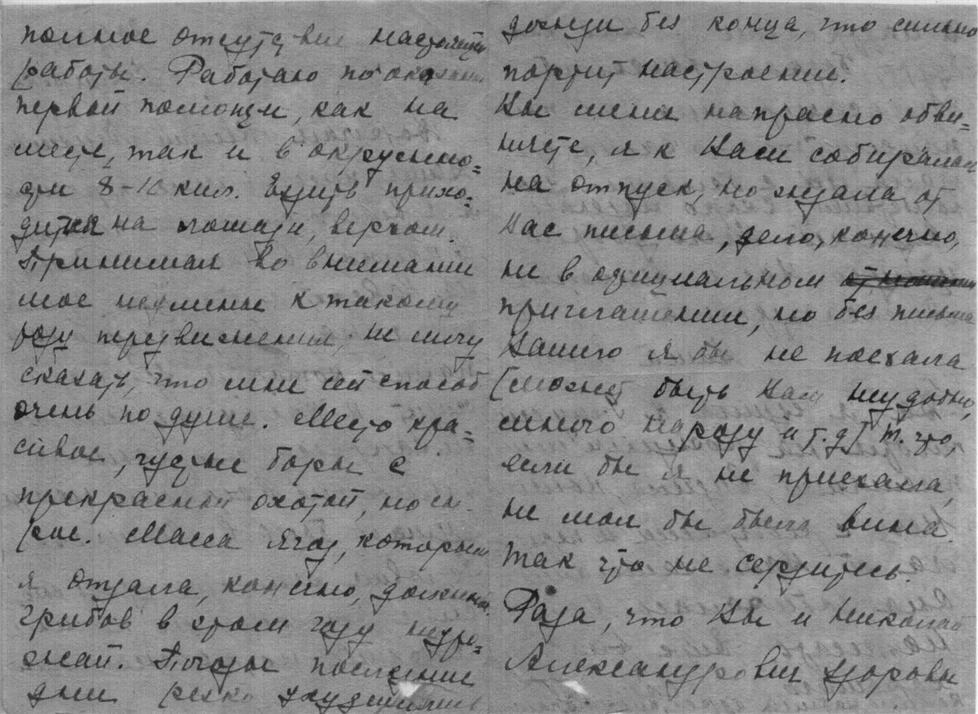 полное отсутствие настоящей
работы. Работаю по оказанию
первой помощи, как на
месте, так и в окружно=
сти 8-10 кил. Ездить прихо=
дится на лошади, верхом.
Принимая во внимание
мое неуменье к такому
роду передвижения, не могу
сказать, что мне сей способ
очень по душе. Место кра=
сивое, густые боры с
прекрасной охотой, но сы-
рое. Масса ягод, которым
я отдала, конечно, должное.
грибов в этом году неуро=
жай. Погоды последние
дни резко ухудшились
дожди без конца, что сильно
портит настроение.
Вы меня напрасно обви-
няете, я к Вам собиралась
на отпуск, но ждала от
Вас письма, дело, конечно,
не в официальном
приглашении, но без письма
Вашего я бы не поехала
(может быть Вам неудобно,
много народу и т.д.) т. что,
если бы я не приехала,
не моя бы была вина.
Так что не сердитесь.
Рада, что Вы и Николай
Александрович здоровы